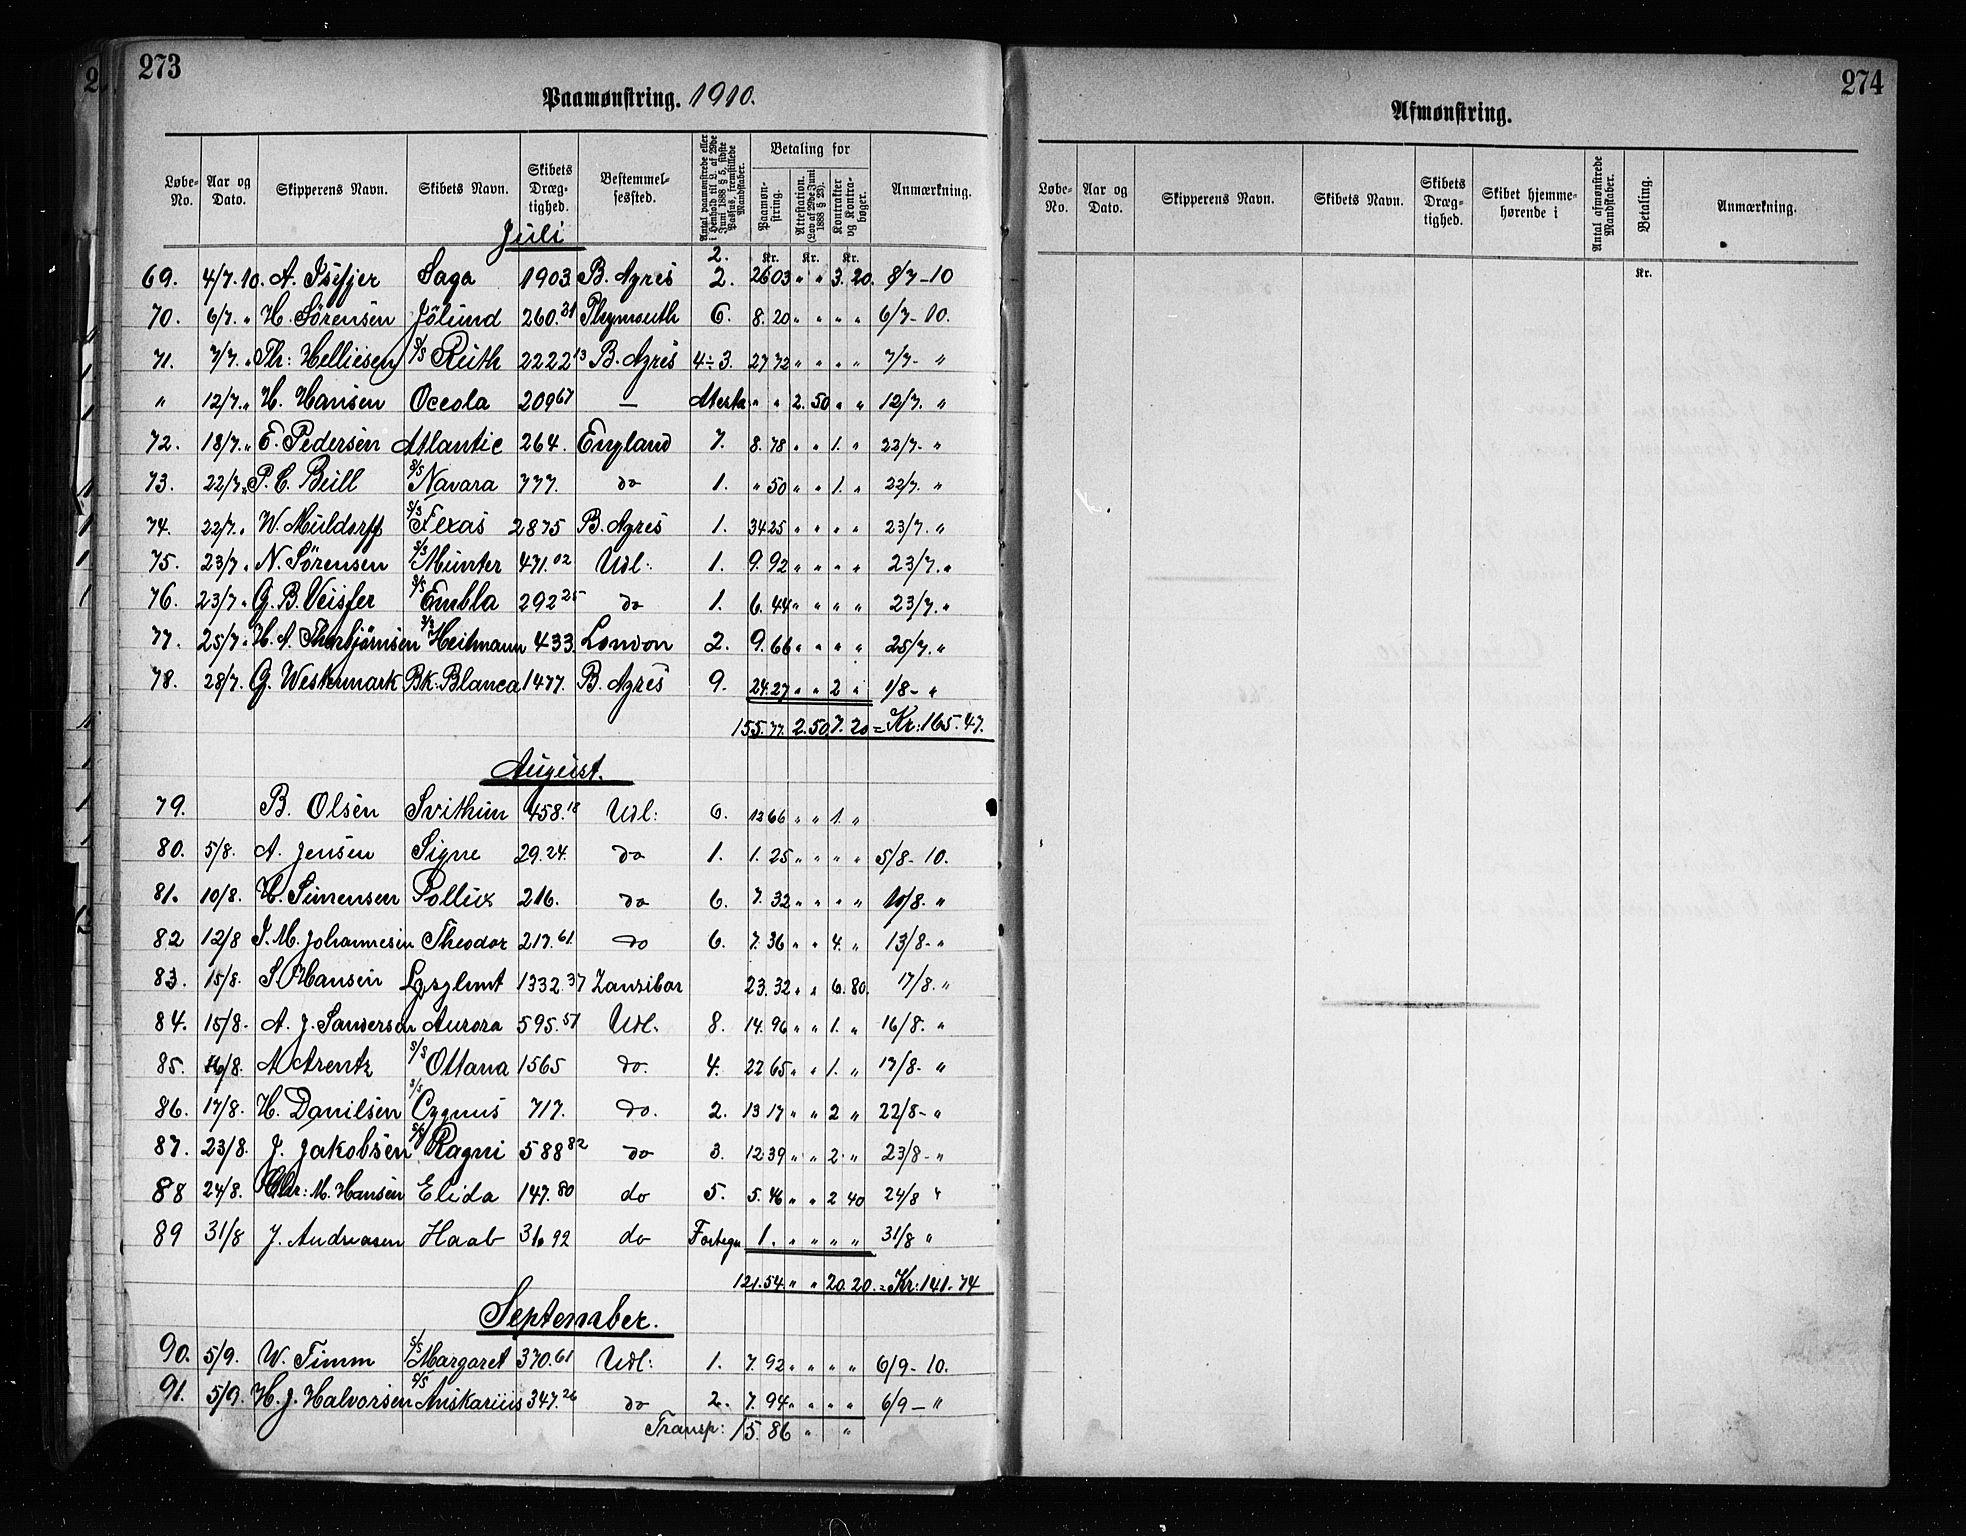 273
Paamønstring. 1910.
Løbe-No. Aar og Dato. Skipperens Navn. Skibets Navn. Skibets Dræg-tighed. Bestemmel-sessted. Antal paamønstrede eller i Henhold til L. af 29de Juni 1888 § 5, sidste Passus, fremstillede Mandskaber. Betaling for Paamøn-string. Attestation. (Lov af 29de Juni 1888 § 23). Kontrakter og Kontra-bøger. Anmærkning.
Juli
2. Kr. Kr. Kr.
69. 4/7.10. A. Saga 1903 B. Ayres 2. 26 03 " " 3. 20. 8/7-10
70. 6/7. " H. Sørensen Jölund 260.31 Plymouth 6. 8. 20 " " " " 6/7-10.
71. 7/7. " Th: Helliesen S/S Ruth 2222 13 B. Ayres 4÷3. 27 72 " " " " 7/7- "
" 12/7. " H. Hansen Oceola 209 67 — Attesta " " 2. 50 " " 12/7. "
72. 18/7. " E. Pedersen Atlantic 264. England 7. 8. 78 " " 1. " 22/7- "
73. 22/7 " P. C. Bull S/S Navara 777. do 1. " 50 " " 1. " 22/7. "
74. 22/7. " W. Muldorff S/S Texas 2875 B. Ayres 1. 34 25 " " " " 23/7. "
75. 23/7 " N. Sørensen S/S Münter 471.02 Udl: 1. 9. 92 " " " " 23/7. "
76. 23/7 " G. B. S/S Embla 292 25 do 1. 6. 44 " " " " 23/7. "
77. 25/7 " H. A. Thorbjørnsen S/S Heitmann 433. London 2. 9. 66 " " " " 25/7. "
78. 28/7. G. Westermark Bk. Blanca 1477. B. Ayres 9. 24. 27 " " 2 " 1/8- "
155. 77. 2. 50 7. 20 = Kr: 165. 47.
August.
79. B. Olsen Svithun 458.18 Udl: 6. 12 66 " " 1. "
80. 5/8. A. Jensen Signe 29.24. do 1. 1. 25 " " " " 5/8-10.
81. 10/8. H. Simensen Pollux 216. do 6. 7. 32 " " " " 10/8. "
82 12/8 J. M. Johannesen Theodor 217.61. do 6. 7. 36 " " 4. " 13/8- "
83. 15/8. S Hansen 1332.37 Zanzibar 23. 32 " " 6. 80. 17/8. "
84. 15/8- A. J. Sandersen Aurora 595.51 Udl. 8. 14. 96 " " 1. " 16/8. "
85. 16/8. A Arentz S/S Ottana 1565 do. 4. 22 65 " " 1. " 17/8- "
86. 17/8. H. Danilsen S/S Cygnus 717. do. 2. 13 17 " " 2 " 22/8- "
87. 23/8. J. Jakobsen S/S Ragni 588 82 do 3. 12 39 " " 2 " 23/8- "
88 24/8. Chr: M. Hansen Elida 147.80 do 5. 5. 46 " " 2 40 24/8 "
89 31/8 J. Andreasen Haab 31. 92 do Fortegn 1. " " " " 31/8 "
121. 54. " " 20. 20. = Kr: 141. 74
September.
90. 5/9. W. Timm S/S Margaret 370.61 Udl: 1. 7. 92 " " " " 6/9-10.
91. 5/9. H. J. Halvorsen S/S Anskarius 347.26 do 2. 7. 94 " " " " 6/9- "
Transp: 15. 86 " "
274
Afmønstring.
Løbe-No. Aar og Dato. Skipperens Navn. Skibets Navn. Skibets Dræg-tighed. Skibet hjemme-hørende i Antal afmønstrede Mandskaber. Betaling. Anmærkning.
Kr.